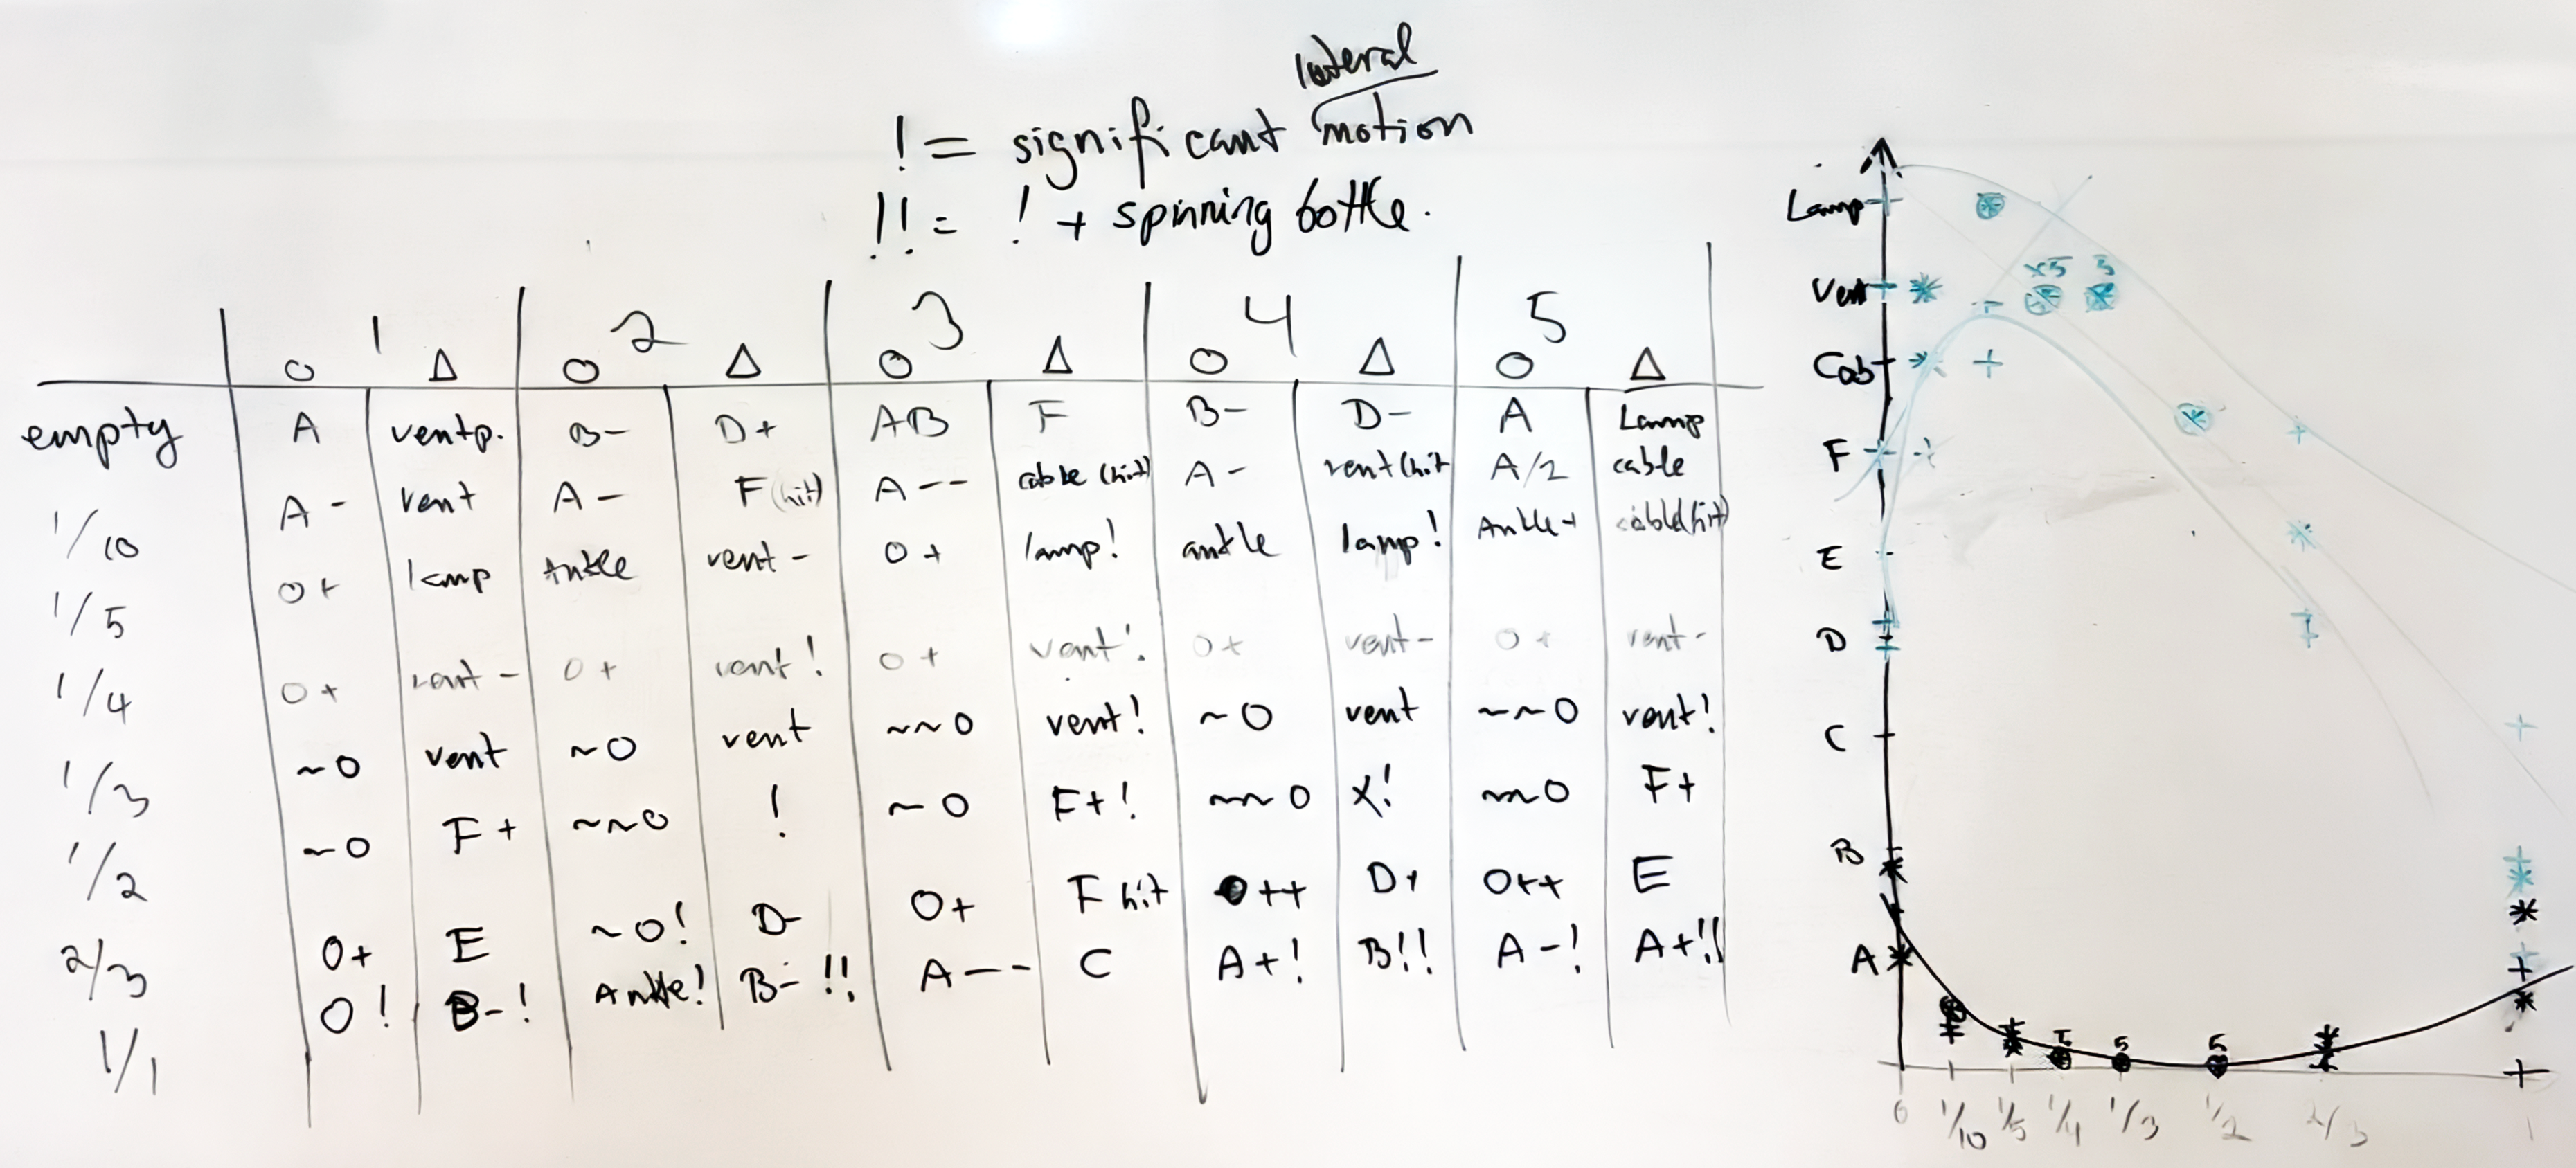 lateral
! = significant motion
!! = ! + spinning bottle.
1 2 3 4 5
O Δ O Δ O Δ O Δ O Δ
empty A ventp. B- D+ AB F B- D- A Lamp
1/10 A- vent A- F (hit) A-- cable (hit) A- vent (hit A/2 cable
1/5 O+ lamp Ankle vent- O+ lamp! ankle lamp! Ankle+ cable(hit)
1/4 O+ vent- O+ vent! O+ vent! O+ vent- O+ vent-
1/3 ~O vent ~O vent ~~O vent! ~O vent ~~O vent!
1/2 ~O F+ ~~O ! ~O F+! ~~O X! ~~O F+
2/3 O+ E ~O! D- O+ F hit O++ D+ O++ E
1/1 O! B-! Ankle! B-!! A--- C A+! B!! A-! A+!!
Lamp
Vent
x5 3
Cab
F
E
D
C
B
A
5 5 5
0 1/10 1/5 1/4 1/3 1/2 2/3 1